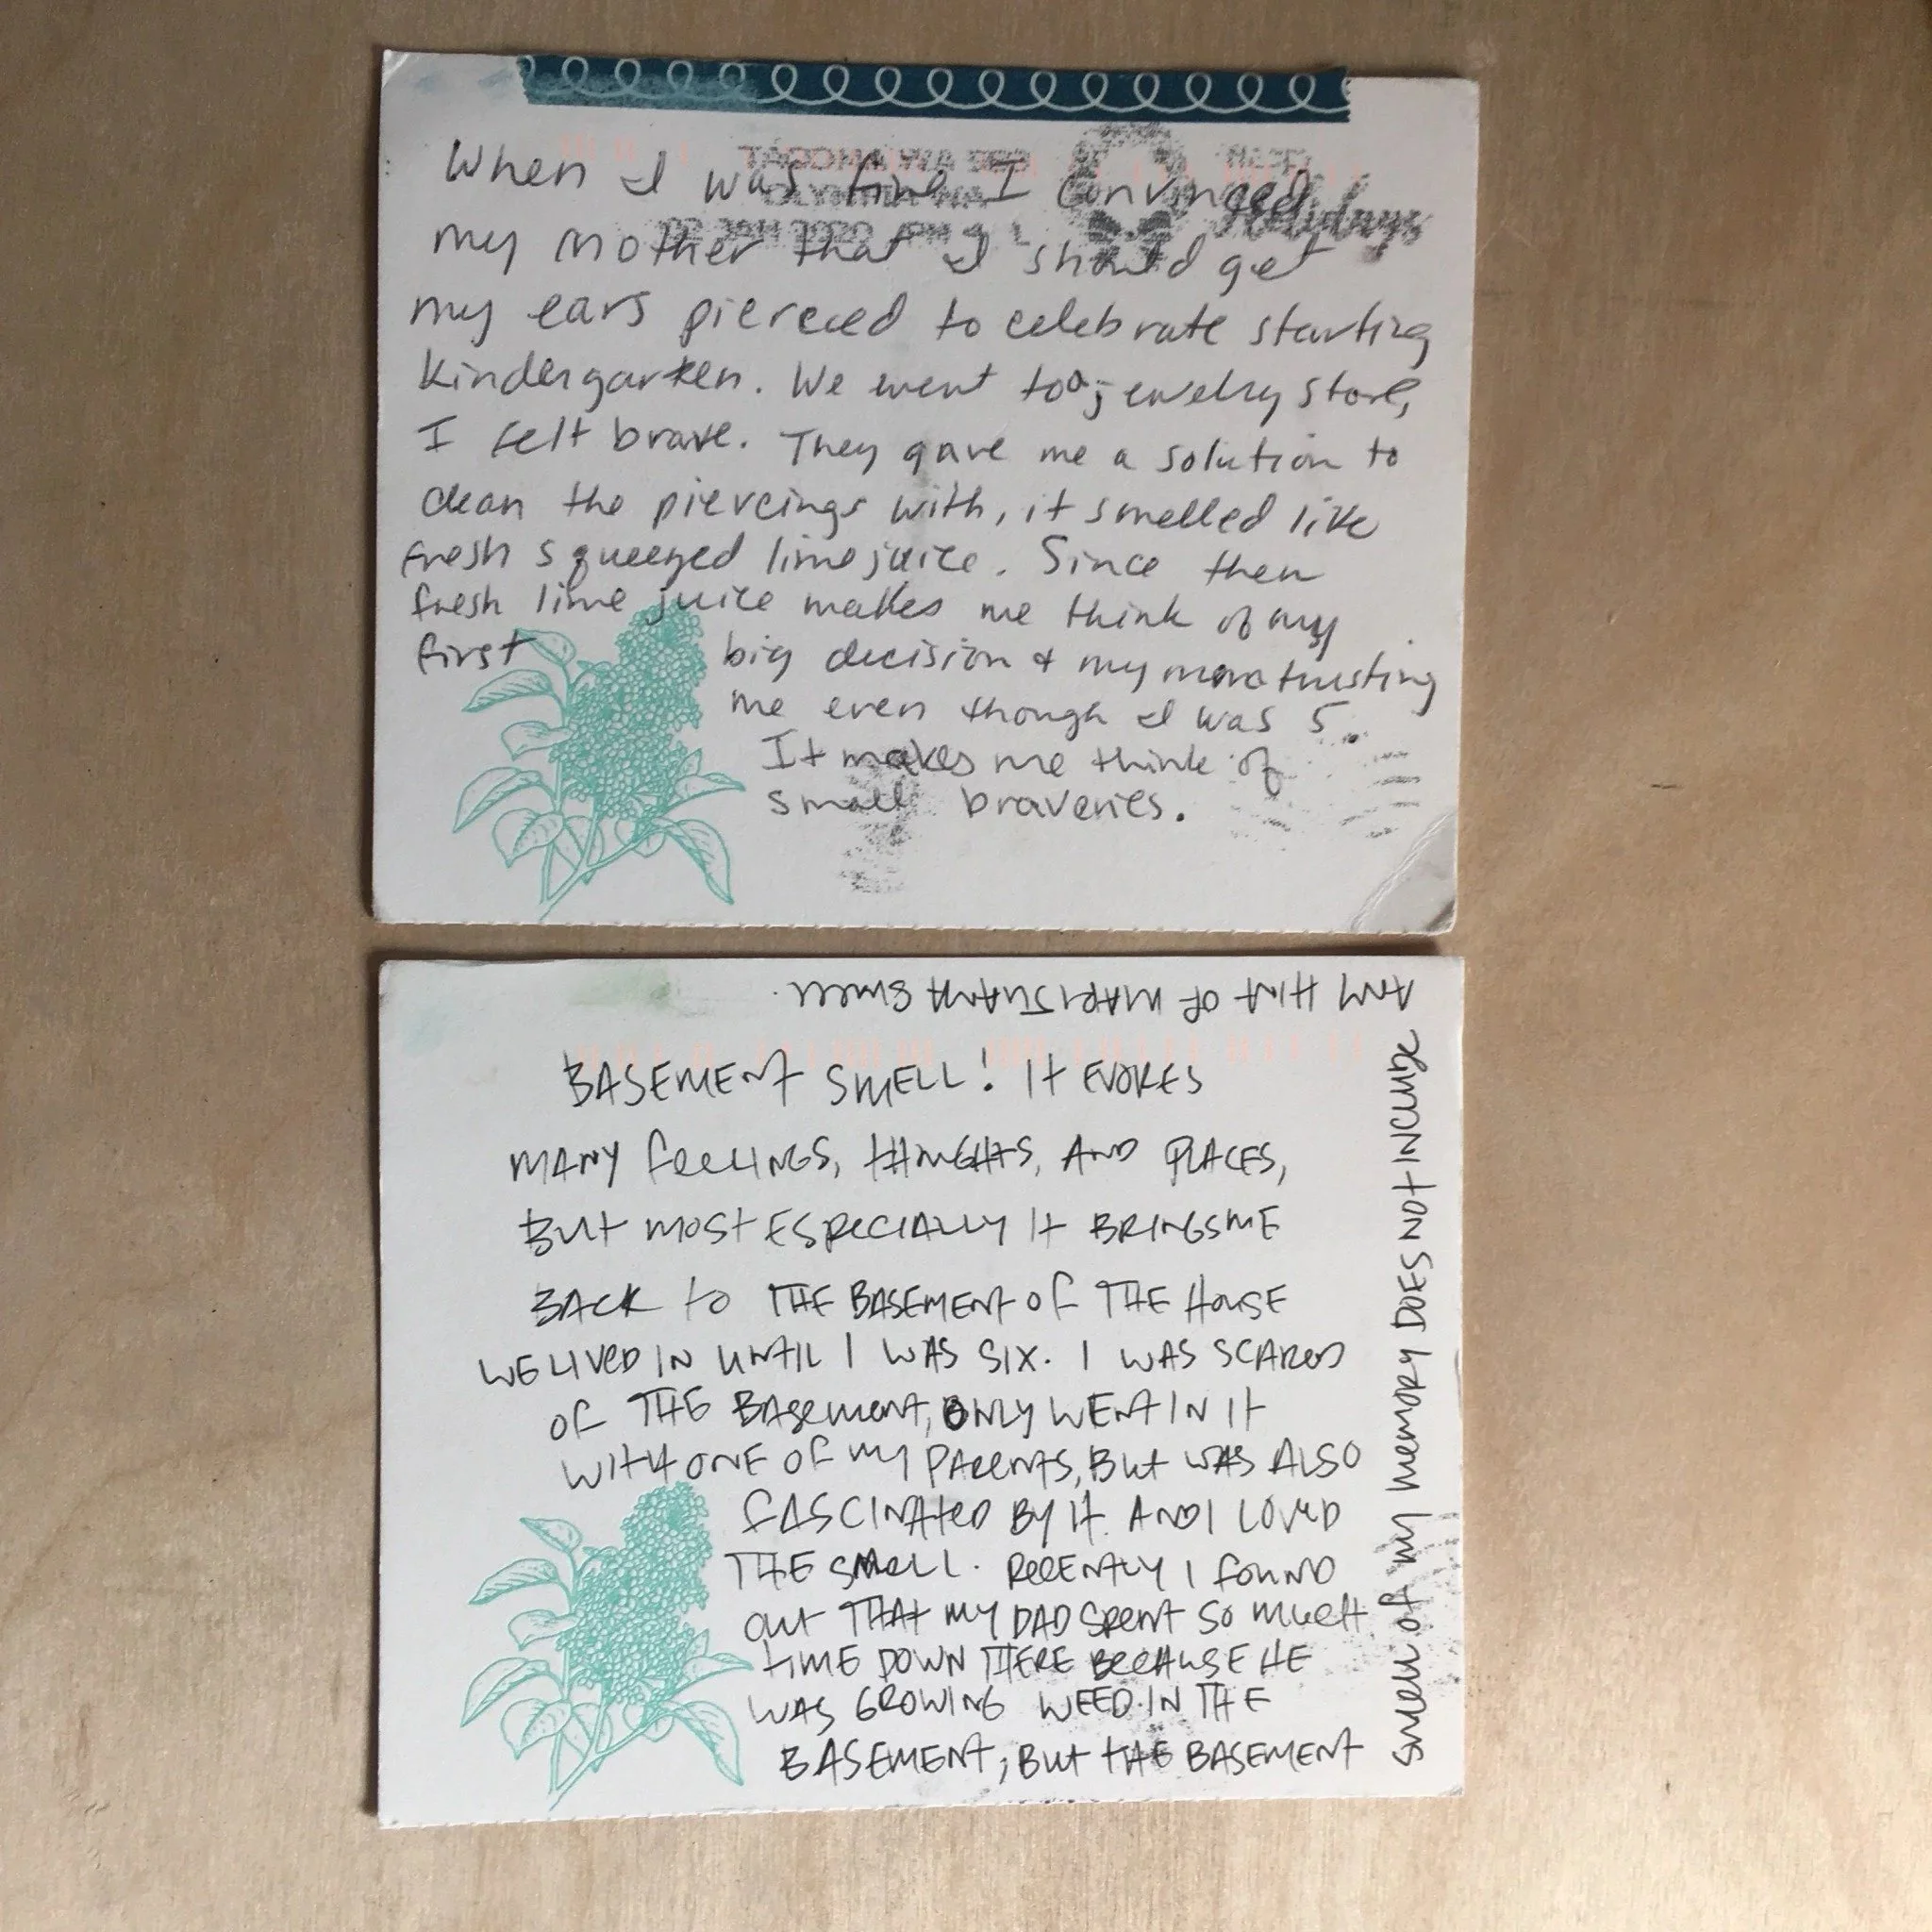 TACOMA WA 983
OLYMPIA WA
02 JAN 2020 PM 4 L
Holidays
When I was five I convinced
my mother that I should get
my ears pierced to celebrate starting
kindergarten. We went to a jewelry store,
I felt brave. They gave me a solution to
clean the piercings with, it smelled like
fresh squeezed lime juice. Since then
fresh lime juice makes me think of my
first big decision & my mom trusting
me even though I was 5.
It makes me think of
small braveries.
BASEMENT SMELL! It EVOKES
MANY feeLINGS, tHOUGHtS, AND PLACES,
BUt MOSt ESPECIALLY It BRINGS ME
BACK to THE BASEMENT Of THE HOUSE
WE LIVED IN UNTIL I WAS SIX. I WAS SCARED
Of THE BASEMENT, ONLY WENT IN It
WITH ONE OF MY PARENTS, BUt WAS ALSO
fASCINATED BY It. AND I LOVED
THE SMELL. RECENTLY I fOUND
OUT THAT MY DAD SPENT SO MUCH
TIME DOWN THERE BECAUSE HE
WAS GROWING WEED IN THE
BASEMENT; BUt tHE BASEMENT
SMELL Of MY MEMORY DOES NOT INCLUDE
ANY HINT OF MARIJUANA SMELL.